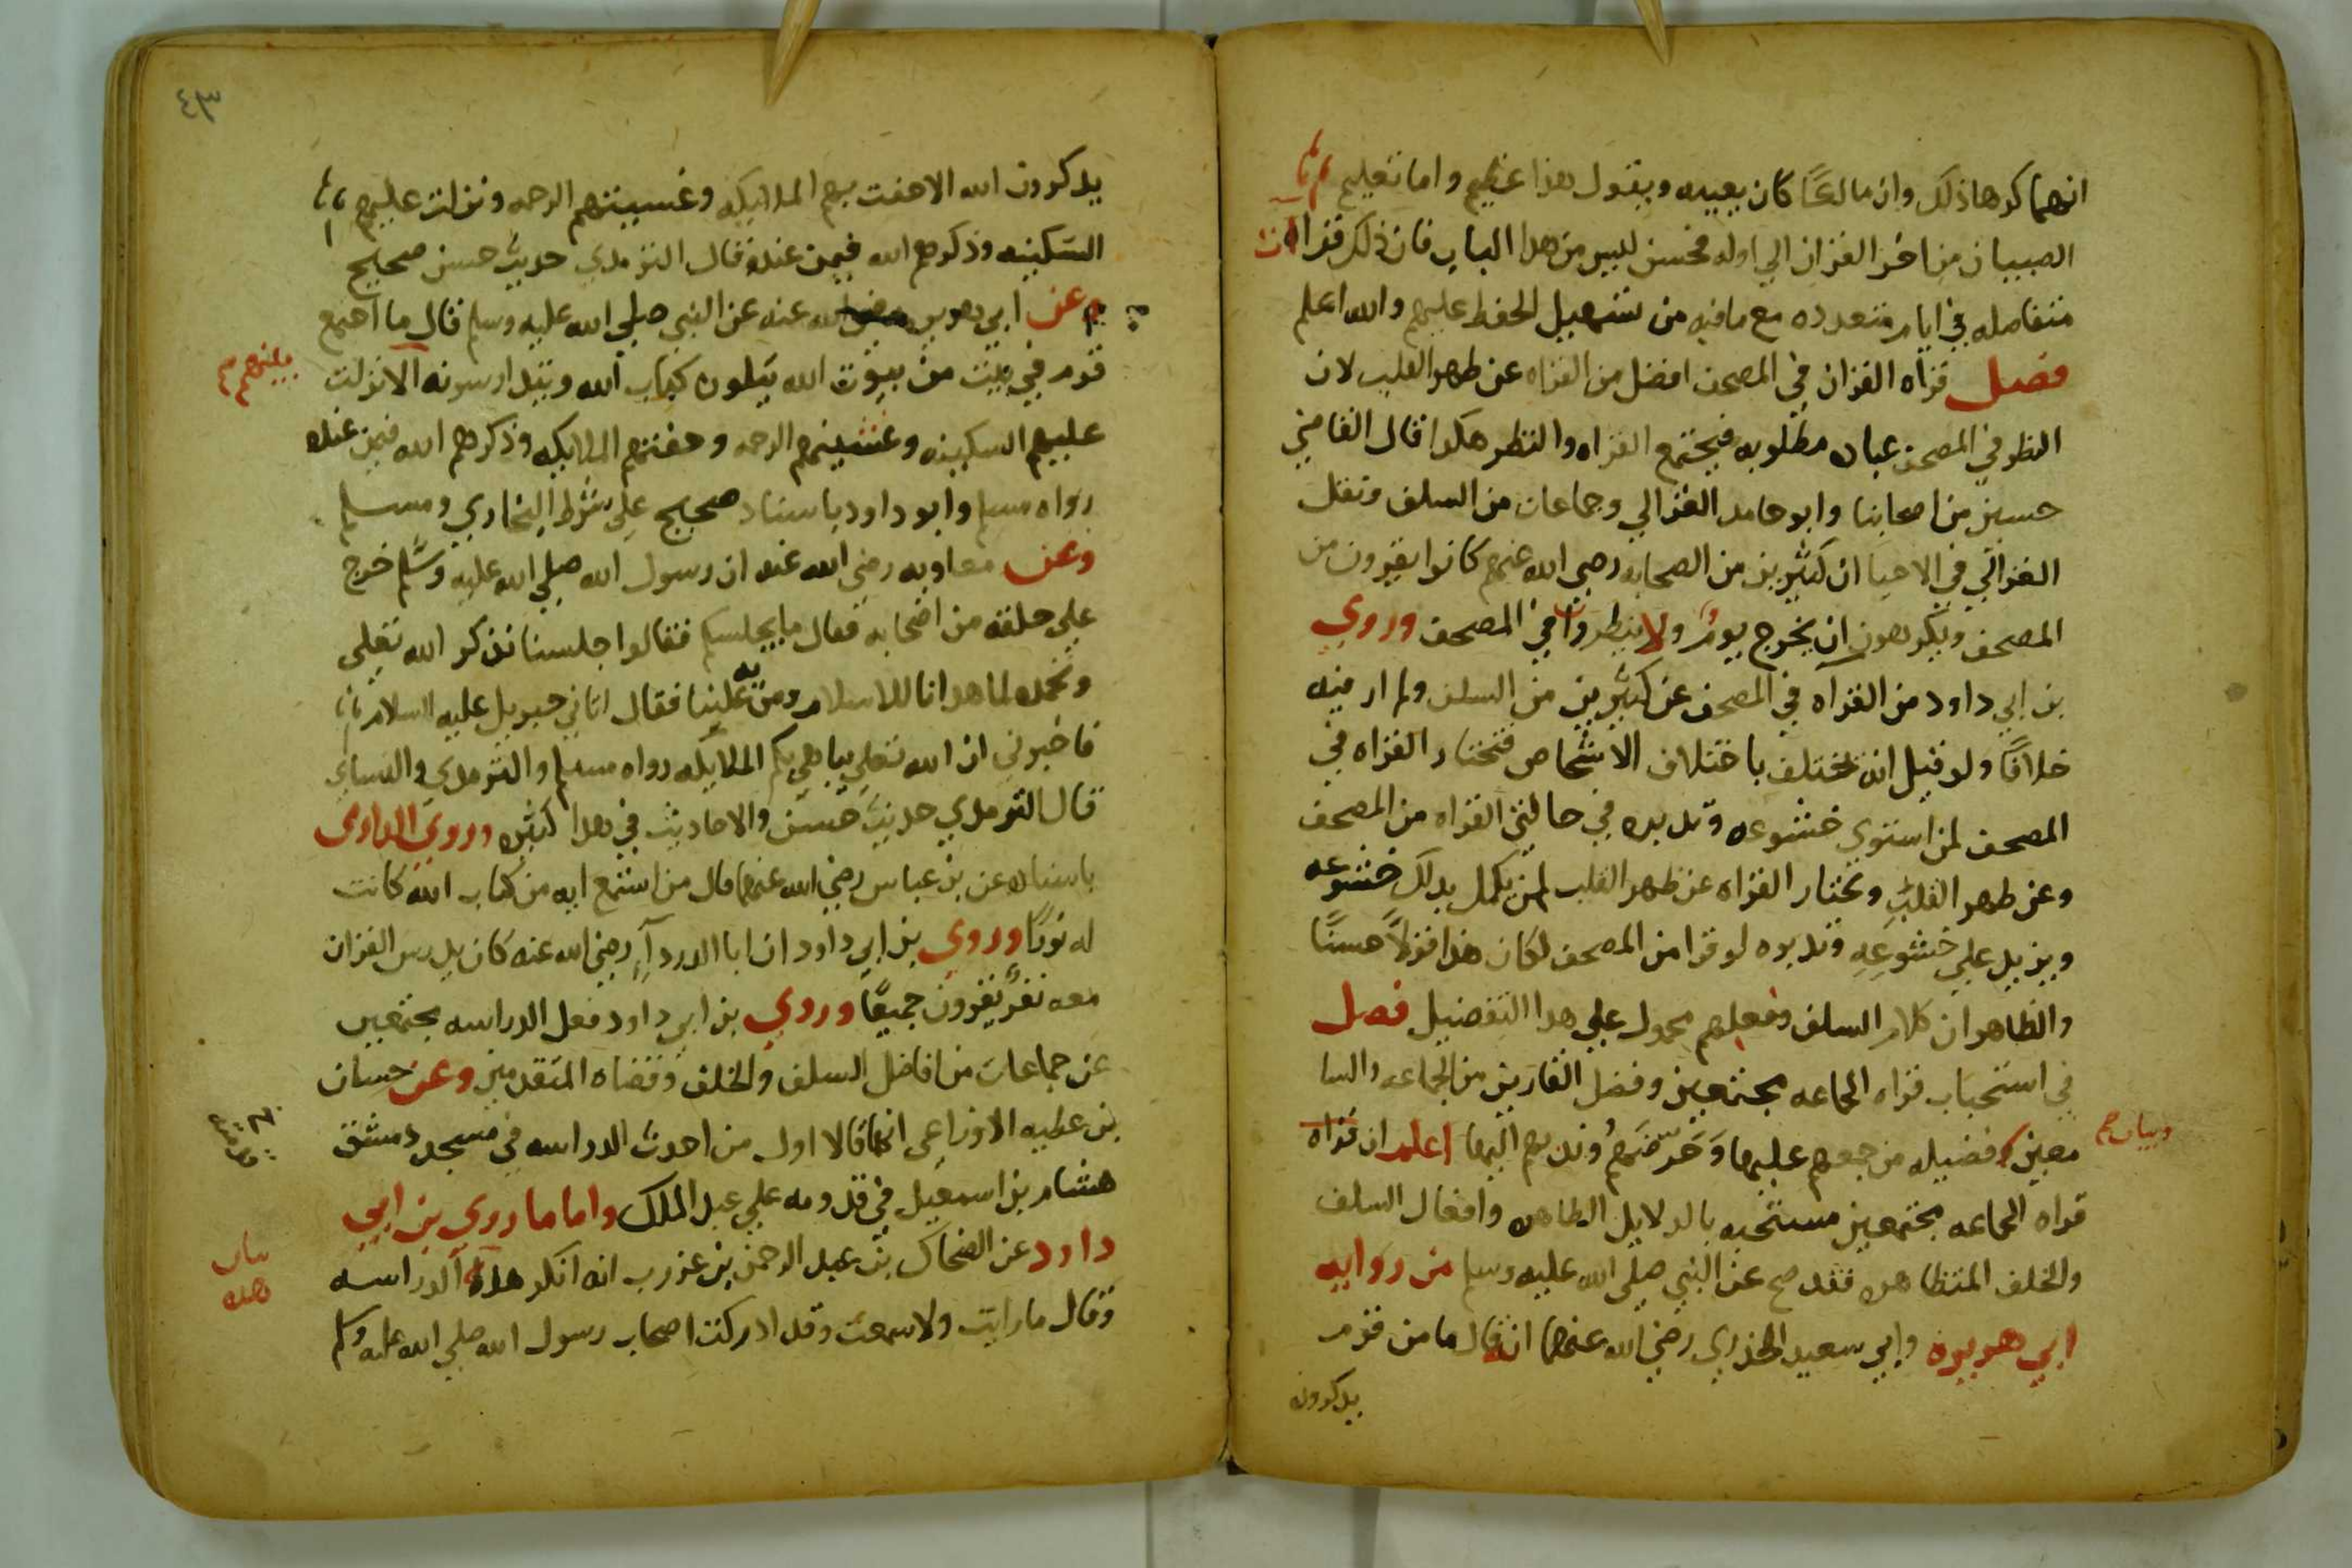 انهما كرها ذلك وان مالكًا كان يعيبه ويقول هذا عظيم واما تعليم
الصبيان من اخر القران الي اوله فحسن ليس من هدا الباب فان ذلك قراات
متفاصله في ايام متعدده مع ما فيه من تسهيل الحفظ عليهم والله اعلم
فصل قراه القران في المصحف افضل من القراه عن ظهر القلب لان
النظر في المصحف عباده مطلوبه فيجتمع القراه والنظر هكدا قال القاضي
حسين من اصحابنا وابو حامد الغزالي وجماعات من السلف ونقل
الغزالي في الاحيا ان كثيرين من الصحابه رضي الله عنهم كانوا يقرون من
المصحف ويكرهون ان يخرج يوم ولا ينظرون في المصحف وروي
بن ابي داود من القراه في المصحف عن كثيرين من السلف ولم ار فيه
خلافًا ولو قيل انه يختلف باختلاف الاشخاص فتختار القراه في
المصحف لمن استوي خشوعه وتدبره في حالتي القراه من المصحف
وعن ظهر القلب وتختار القراه عن ظهر القلب لمن يكمل بدلك خشوعه
ويزيد علي خشوعه وتدبره لو قرا من المصحف لكان هذا قولًا حسنًا
والظاهر ان كلام السلف وفعلهم محمول علي هدا التفضيل فصل
في استحباب قراه الجماعه مجتمعين وفضل القارين من الجماعه والسا
معين وفضيله من جمعهم عليها وحرضهم وندبهم اليها اعلم ان قراه
وبيان
قراه الجماعه مجتمعين مستحبه بالدلايل الظاهره وافعال السلف
والخلف المتظاهره فقد صح عن النبي صلي الله عليه وسلم من روايه
ابي هريره وابي سعيد الخدري رضي الله عنهما انه قال ما من قوم
يدكرون
٤٣
يدكرون الله الا حفت بهم الملايكه وغسيتهم الرحمه ونزلت عليهم
السكينه وذكرهم الله فيمن عنده قال الترمدي حديث حسن صحيح
وعن ابي هريره رضي الله عنه عن النبي صلي الله عليه وسلم قال ما اجتمع
قوم في بيت من بيوت الله يتلون كتاب الله ويتدارسونه الا نزلت
بينهم
عليهم السكينه وغشيتهم الرحمه وحفتهم الملايكه وذكرهم الله فيمن عنده
رواه مسلم وابو داود باسناد صحيح علي شرط البخاري ومسلم
وعن معاويه رضي الله عنه ان رسول الله صلي الله عليه وسلم خرج
علي حلقه من اصحابه فقال ما يجلسكم فقالوا جلسنا نذكر الله تعلي
ونحمده لما هدانا للاسلام ومن به علينا فقال اتاني جبريل عليه السلام
فاخبرني ان الله تعلي يباهي بكم الملايكه رواه مسلم والترمدي والنساي
قال الترمدي حديث حسن والاحاديث في هدا كثيره وروي الدارمي
باسناده عن بن عباس رضي الله عنهما قال من استمع ايه من كتاب الله كانت
له نورًا وروي بن ابي داود ان ابا الدرداء رضي الله عنه كان يدرس القران
معه نفر يقرون جميعًا وروي بن ابي داود فعل الدراسه مجتمعين
عن جماعات من افاضل السلف والخلف وقضاه المتقدمين وعن حسان
بن عطيه الاوزاعي انهما قالا اول من احدث الدراسه في مسجد دمشق
هشام بن اسمعيل في قدومه علي عبد الملك واما ما روي بن ابي
داود عن الضحاك بن عبد الرحمن بن عزرب انه انكر هده الدراسه
بيان
هده
وقال ما رايت ولا سمعت وقد ادركت اصحاب رسول الله صلي الله عليه وسلم